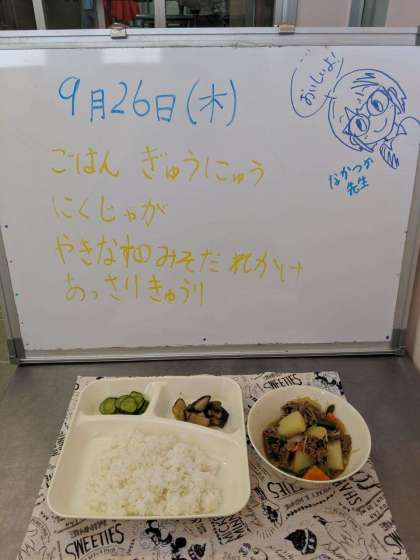 9月26日(木)
おいしいよ!
なかつか
先生
ごはん ぎゅうにゅう
にくじゃが
やきなすのみそだれかけ
あっさりきゅうり
SWEETIES
SWEETIES